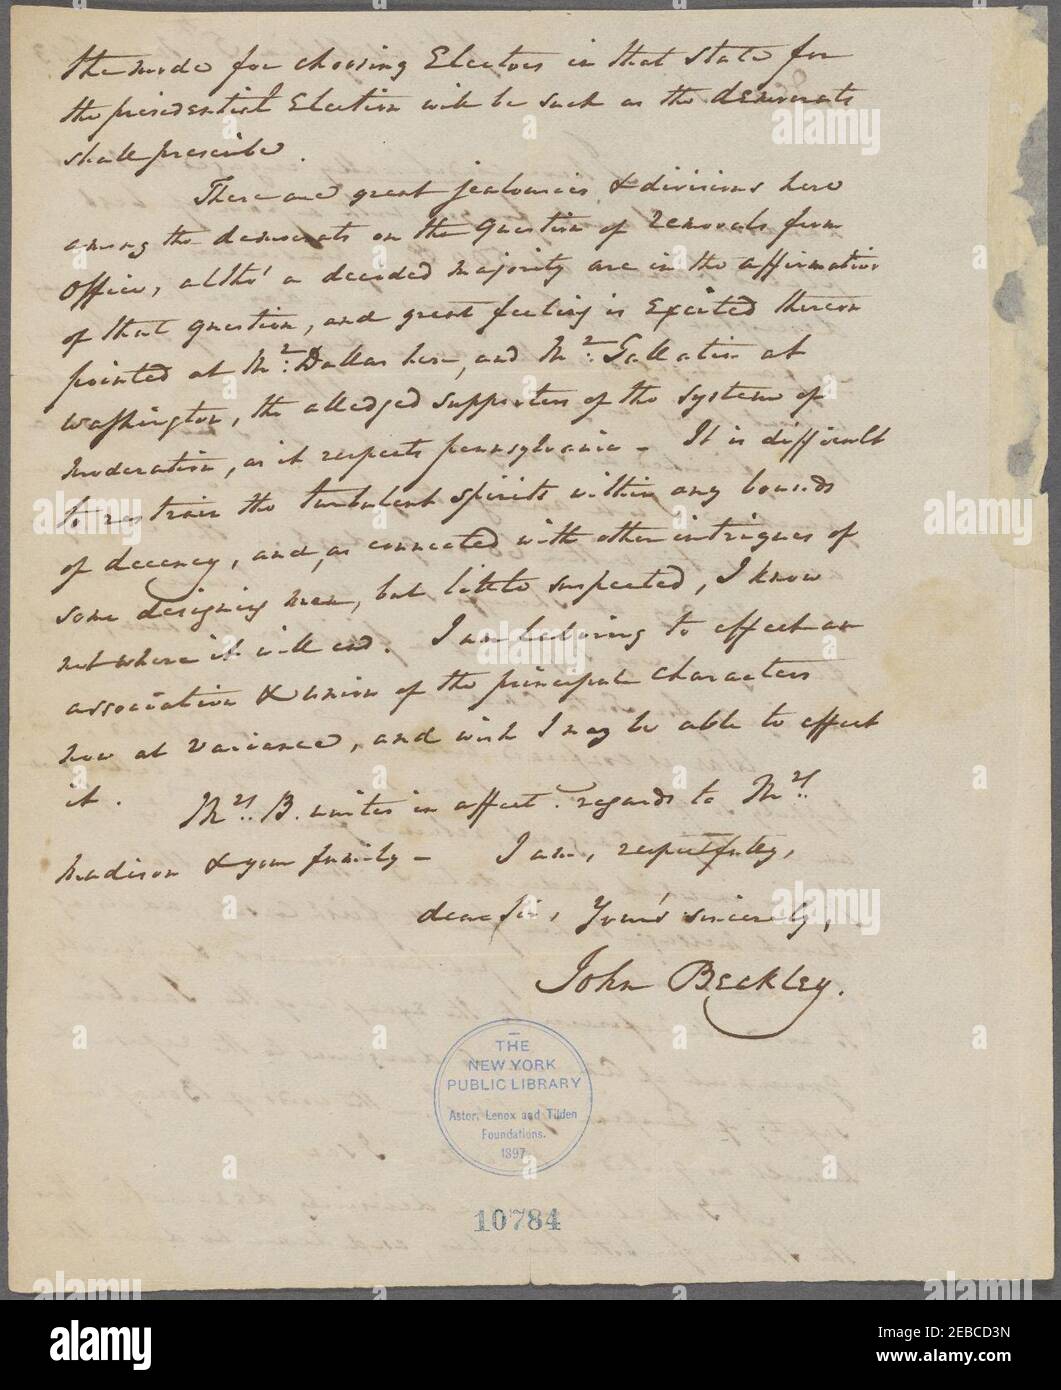 the mode for choosing Electors in that State for
the presidential Election will be such as the democrats
shall prescribe.
There are great jealousies & divisions here
among the democrats on the question of removals from
Office, altho' a decided majority are in the affirmative
of that question, and great feeling is Excited thereon
pointed at Mr. Dallas here, and Mr. Gallatin at
Washington, the alledged supporters of the system of
moderation, as it respects pennsylvania - It is difficult
to restrain the turbulent spirits within any bounds
of decency, and, as connected with other intrigues of
some designing men, but little suspected, I know
not where it will end. I am labouring to effect an
association & union of the principal characters
now at variance, and wish I may be able to effect
it. Mrs. B. unites in affect. regards to Mrs.
Madison & your family - I am, respectfully,
dear Sir, Your's sincerely,
John Beckley.
THE
NEW YORK
PUBLIC LIBRARY
Astor, Lenox and Tilden
Foundations.
1897
10784
alamy
alamy
Image ID: 2EBCD3N
www.alamy.com